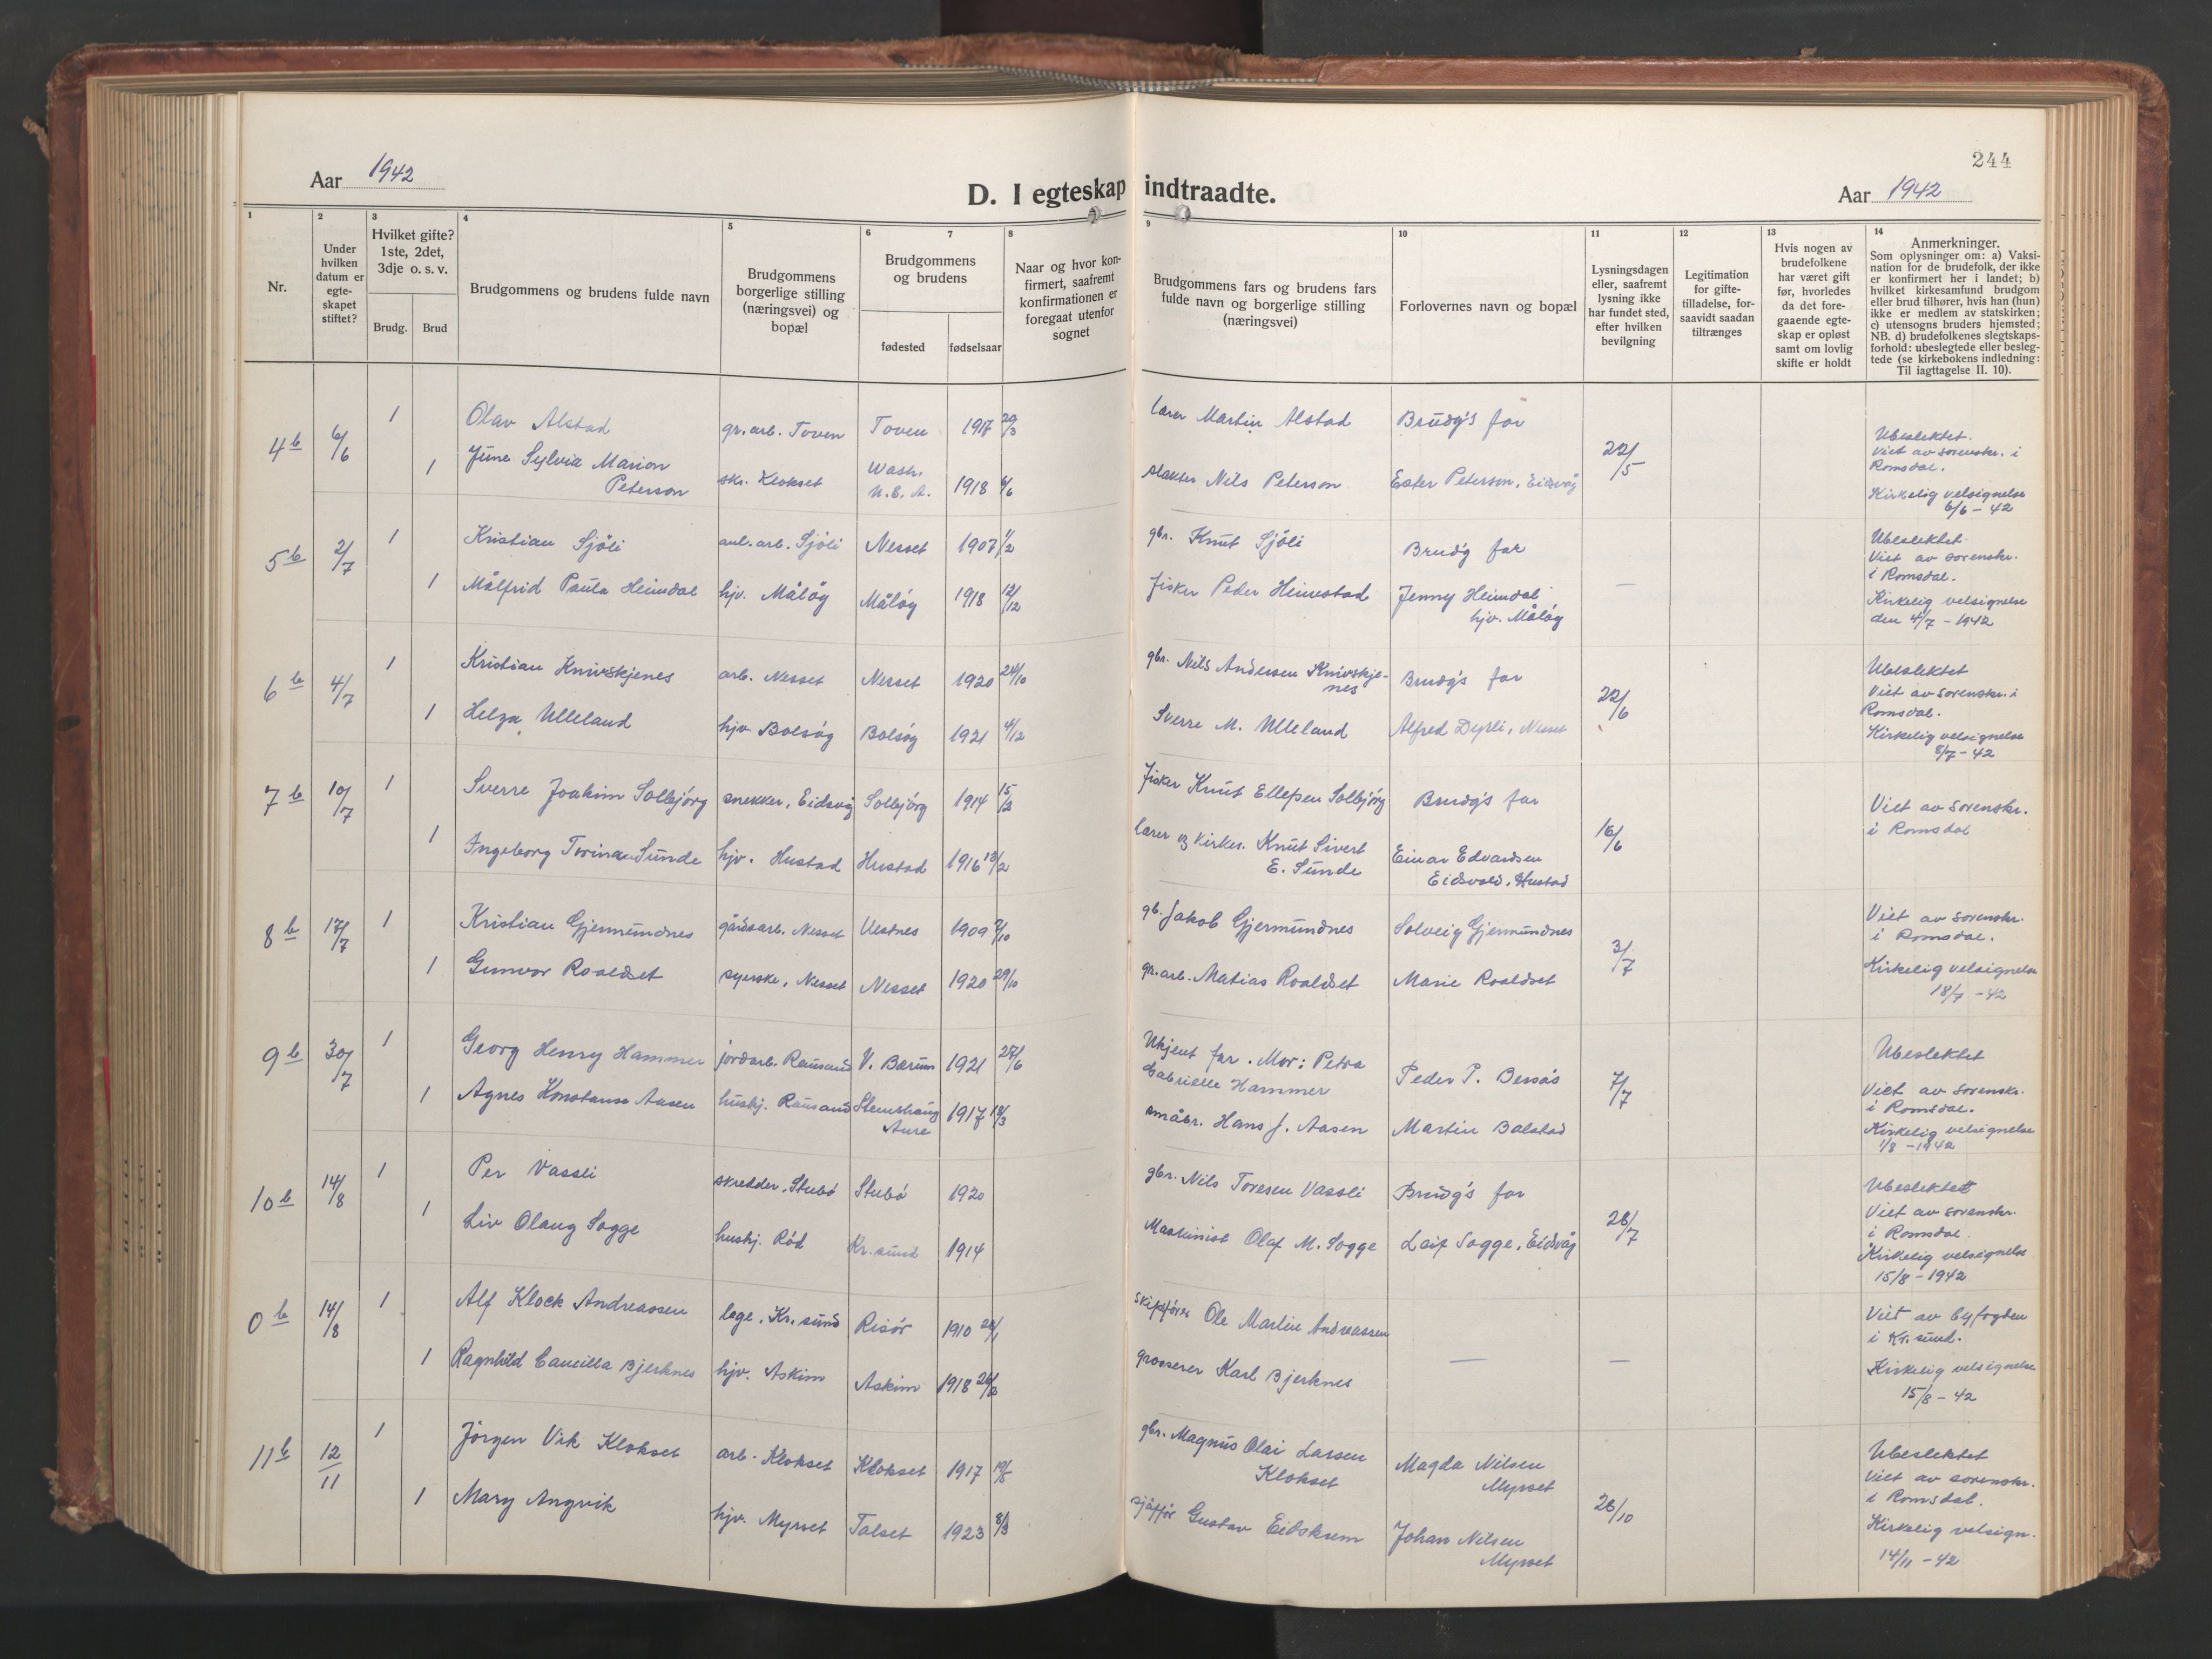 244
Aar 1942
D. I egteskap indtraadte.
Aar 1942
1
2
3
4
5
6
7
8
9
10
11
12
13
14
Nr.
Under
hvilken
datum er
egte-
skapet
stiftet?
Hvilket gifte?
1ste, 2det,
3dje o. s. v.
Brudg.
Brud
Brudgommens og brudens fulde navn
Brudgommens
borgerlige stilling
(næringsvei) og
bopæl
Brudgommens
og brudens
fødested
fødselsaar
Naar og hvor kon-
firmert, saafremt
konfirmationen er
foregaat utenfor
sognet
Brudgommens fars og brudens fars
fulde navn og borgerlige stilling
(næringsvei)
Forlovernes navn og bopæl
Lysningsdagen
eller, saafremt
lysning ikke
har fundet sted,
efter hvilken
bevilgning
Legitimation
for gifte-
tilladelse, for-
saavidt saadan
tiltrænges
Hvis nogen av
brudefolkene
har været gift
før, hvorledes
da det fore-
gaaende egte-
skap er opløst
samt om lovlig
skifte er holdt
Anmerkninger.
Som oplysninger om: a) Vaksi-
nation for de brudefolk, der ikke
er konfirmert her i landet; b)
hvilket kirkesamfund brudgom
eller brud tilhører, hvis han (hun)
ikke er medlem av statskirken;
c) utensogns bruders hjemsted;
NB. d) brudefolkenes slegtskaps-
forhold: ubeslegtede eller besleg-
tede (se kirkebokens indledning:
Til iagttagelse II. 10).
4b 6/6 1 Olav Alstad gr.arb. Toven Toven 1917 29/3 lærer Martin Alstad Brudg's far 22/5
1 June Sylvia Marion
Peterson skr. Klokset Wash.
U.S.A. 1918 6/6 slakter Nils Peterson Ester Peterson, Eidsvåg
Ubeslektet.
Viet av sorenskr. i
Romsdal.
Kirkelig velsignelse
6/6 - 42
5b 2/7 1 Kristian Sjöli anl.arb. Sjöli Nesset 1907 1/2 gbr. Knut Sjöli Brudg far —
1 Målfrid Paula Heimdal hjv. Målöy Målöy 1918 12/12 fisker Peder Heimestad Jenny Heimdal
hjv. Målöy
Ubeslektet.
Viet av sorenskr.
i Romsdal.
Kirkelig velsignelse
den 4/7 - 1942
6b 4/7 1 Kristian Knivskjenes arb. Nesset Nesset 1920 24/10 gbr. Nils Andersen Knivskje-
nes Brudg's far 22/6
1 Helga Ulleland hjv Bolsöy Bolsöy 1921 4/12 Sverre M. Ulleland Alfred Nesset
Ubeslektet
Viet av sorenskr. i
Romsdal.
Kirkelig velsignelse
8/7 - 42
7b 10/7 1 Sverre Joakim Solbjörg snekker, Eidsvåg Solbjörg 1914 15/2 fisker Knut Ellefsen Solbjörg Brudg's far 16/6
1 Ingeborg Torina Sunde hjv. Hustad Hustad 1916 13/2 lærer og kirkes. Knut Sivert
E. Sunde Einar Edvardsen
Eidsvold, Hustad
Viet av sorenskr.
i Romsdal
8b 17/7 1 Kristian Gjermundnes gårdsarb. Nesset Vestnes 1909 2/10 gb. Jakob Gjermundnes Solveig Gjermundnes 3/7
1 Gunvor Roaldset syerske, Nesset Nesset 1920 29/10 gr.arb. Matias Roaldset Marie Roaldset
Viet av sorenskr.
i Romsdal.
Kirkelig velsignelse
18/7 - 42
9b 30/7 1 Georg Henry Hammer jordarb. Rausand V. Bærum 1921 27/6 Ukjent far. Mor: Petra
Gabrielle Hammer Peder P. Bersås 7/7
1 Agnes Konstanse Aasen hushj. Rausand Stemshaug
Aure 1917 18/3 småbr. Hans J. Aasen Martin Bolstad
Ubeslektet
Viet av sorenskr.
i Romsdal.
Kirkelig velsignelse
1/8 - 1942
10b 14/8 1 Per Vassli skredder, Stubö Stubö 1920 gbr. Nils Toresen Vassli Brudg's far 28/7
1 Liv Olaug Sogge hushj. Röd Kr.sund 1914 Maskinist Olaf M. Sogge Leif Sogge, Eidsvåg
Ubeslektet
Viet av sorenskr.
i Romsdal.
Kirkelig velsignelse
15/8 - 1942
0b 14/8 1 Alf Klock Andreassen lege, Kr.sund Risör 1910 28/1 skipsförer Ole Martin Andreassen — —
1 Ragnhild Camilla Bjerknes hjv. Askim Askim 1918 26/2 grosserer Karl Bjerknes
Viet av byfogden
i Kr.sund.
Kirkelig velsignelse
15/8 - 42
11b 12/11 1 Jörgen Vik Klokset arb. Klokset Klokset 1917 19/5 gbr. Magnus Olai Larsen
Klokset Magda Nilsen
Myrset 26/10
1 Mary Angvik hjv. Myrset Talset 1923 8/3 sjåför Gustav Eidskrem Johan Nilsen
Myrset
Ubeslektet
Viet av sorenskr.
i Romsdal.
Kirkelig velsign.
14/11 - 42